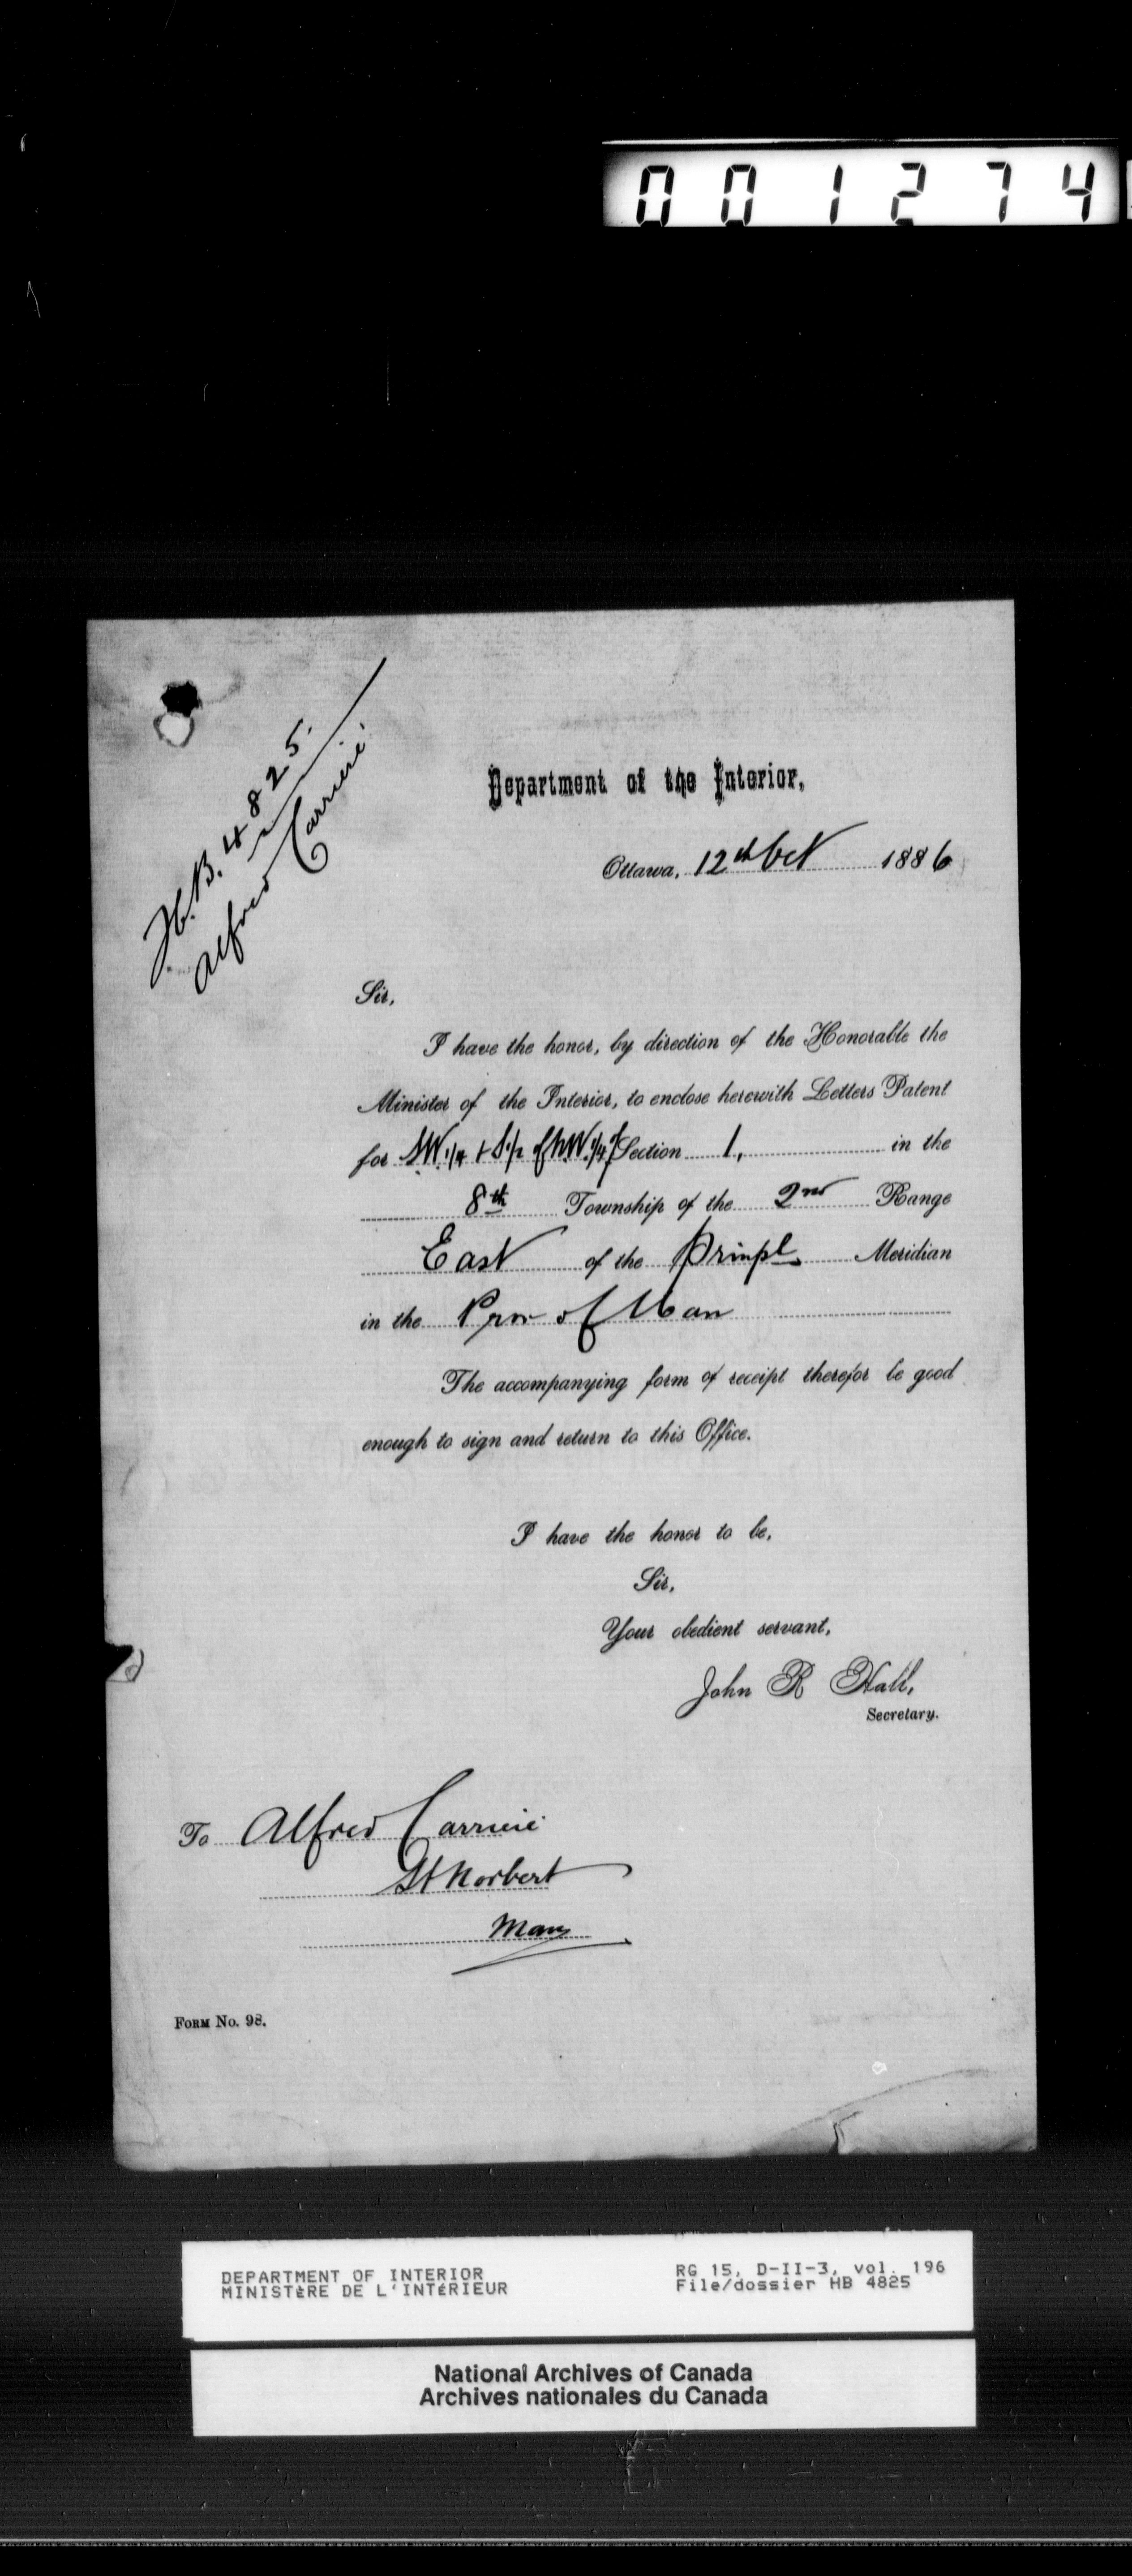 001274
H.B. 4825.
Alfred Carriere
Department of the Interior,
Ottawa, 12th Oct 1886
Sir,
I have the honor, by direction of the Honorable the
Minister of the Interior, to enclose herewith Letters Patent
for S.W. 1/4 + S. 1/2 of N.W. 1/4 of Section 1, in the
8th Township of the 2nd Range
East of the Prinpl Meridian
in the Prov of Man
The accompanying form of receipt therefor be good
enough to sign and return to this Office.
I have the honor to be,
Sir,
Your obedient servant,
John R Hall,
Secretary.
To Alfred Carriere
St Norbert
Man
FORM No. 98.
DEPARTMENT OF INTERIOR
MINISTÈRE DE L'INTÉRIEUR
RG 15, D-II-3, vol. 196
File/dossier HB 4825
National Archives of Canada
Archives nationales du Canada